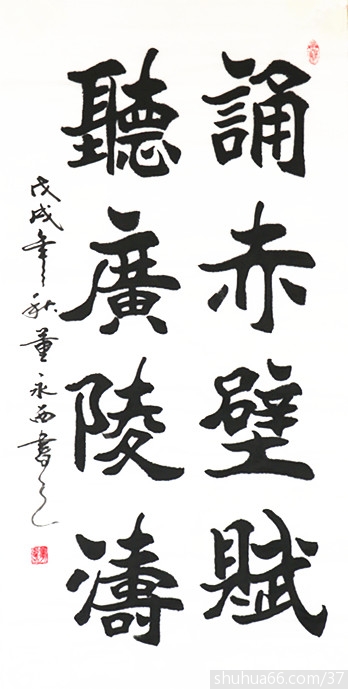 誦赤壁賦
聽廣陵濤
戊戌年秋董永西書之
shuhua66.com/37